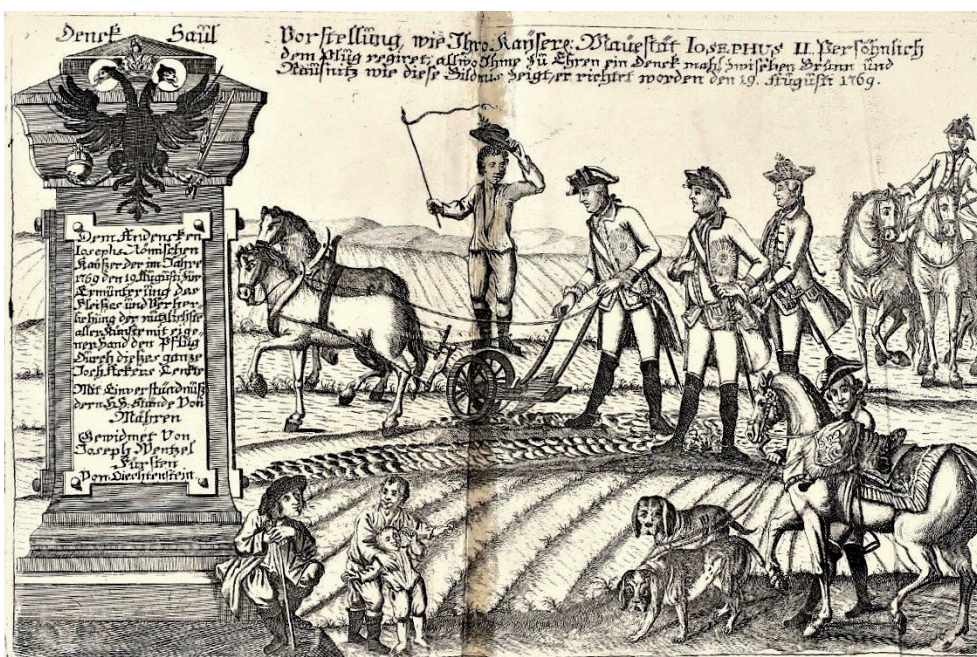 Denck Saül
Vorstellüng, wie Ihro Kaÿsere: Maüestät IOSEPHUS II. Persöhnlich
dem Plüg regiret; allwo Ihme Zü Ehren ein Denck mahl zwischen Brünn und
Raüsnitz wie diese Bildnis Zeigt, er richtet worden den 19. Aügüsti 1769.
Dem Andencken
Josephs Römischen
Kaÿser der im Jahre
1769 den 19 Augusti Zur
Ermünterüng des
Fleißes und
der nützlichste
aller Künste mit eige-
ner Hand den Pflüg
Durch dießes gantze
Joch Ackers Lenkte
Mit Einverständnüß
dern H.H. Stände Von
Mähren
Gewidmet Von
Joseph Wentzel
Fürsten
Von Liechtenstein